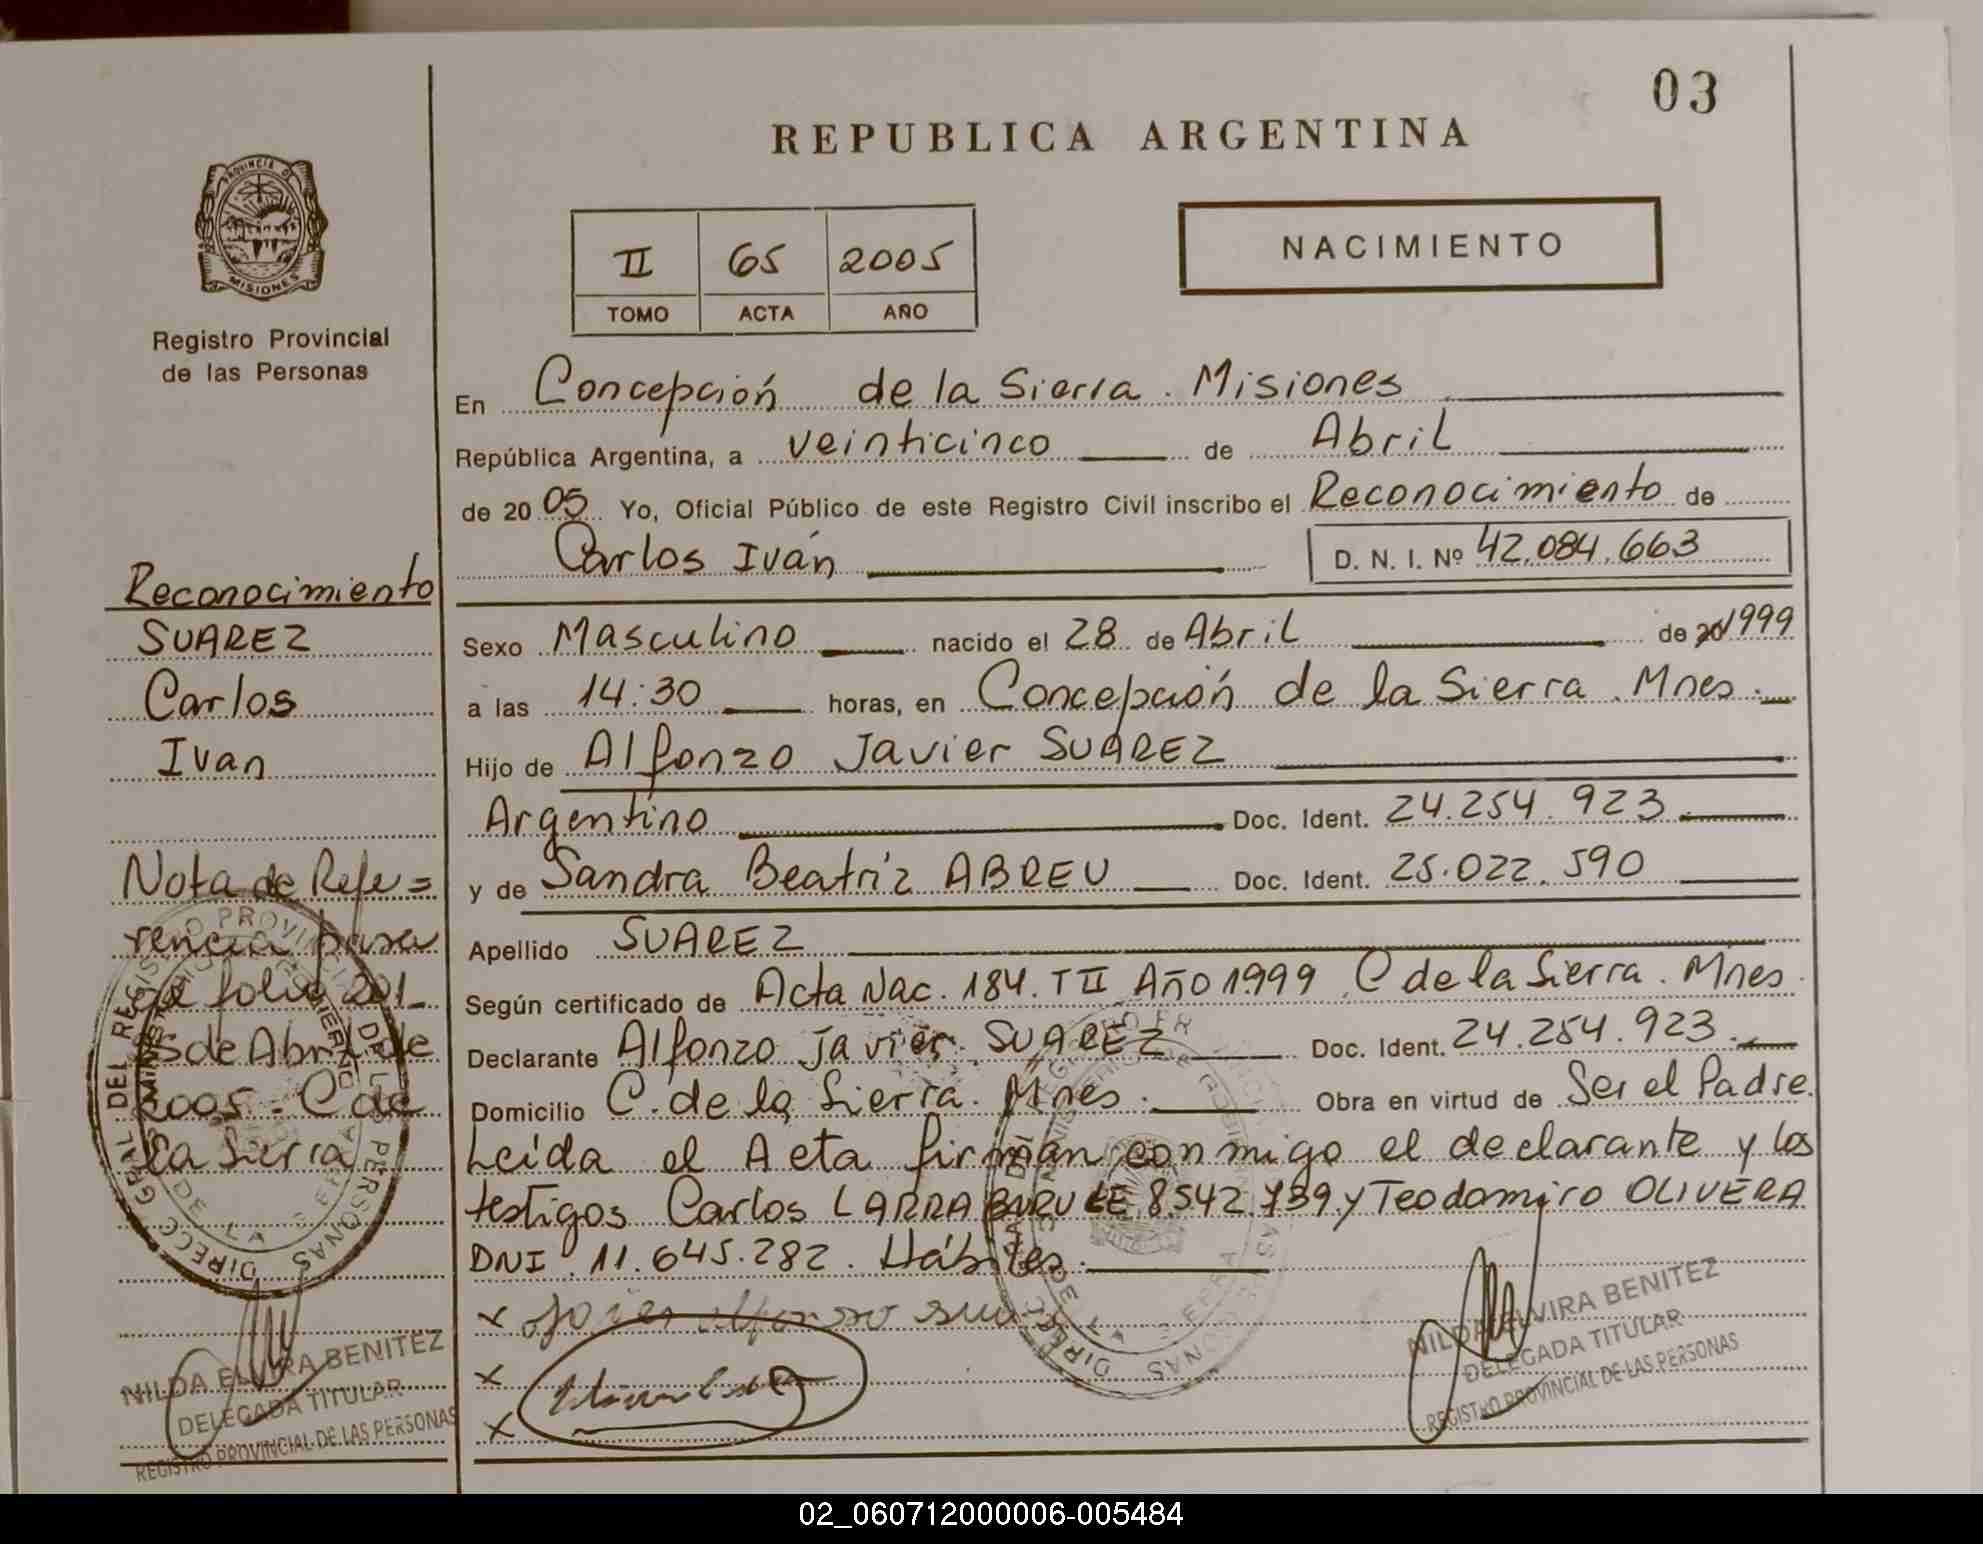 03
REPUBLICA ARGENTINA
PROVINCIA DE
MISIONES
II 65 2005
TOMO ACTA AÑO
NACIMIENTO
Registro Provincial
de las Personas
En Concepción de la Sierra. Misiones
República Argentina, a veinticinco de Abril
de 2005 Yo, Oficial Público de este Registro Civil inscribo el Reconocimiento de
Carlos Iván D. N. I. Nº 42.084.663
Sexo Masculino nacido el 28 de Abril de 1999
a las 14:30 horas, en Concepción de la Sierra. Mnes.
Hijo de Alfonzo Javier SUAREZ
Argentino Doc. Ident. 24.254.923
y de Sandra Beatríz ABREU Doc. Ident. 25.022.590
Apellido SUAREZ
Según certificado de Acta Nac. 184. T II Año 1999 C de la Sierra. Mnes.
Declarante Alfonzo Javier SUAREZ Doc. Ident. 24.254.923.
Domicilio C. de la Sierra. Mnes. Obra en virtud de Ser el Padre.
Leída el Acta firman conmigo el declarante y los
testigos Carlos LARRABURU LE 8.542.739 y Teodomiro OLIVERA
DNI 11.645.282. Hábiles.
x Javier Alfonso
x
x
NILDA ELVIRA BENITEZ
DELEGADA TITULAR
REGISTRO PROVINCIAL DE LAS PERSONAS
Reconocimiento
SUAREZ
Carlos
Ivan
Nota de Refe=
rencia pasa
folio 201
de Abril de
2005 - C de
la Sierra
DIRECC GRAL DEL REGISTRO PROVINCIAL DE LAS PERSONAS
NILDA ELVIRA BENITEZ
DELEGADA TITULAR
REGISTRO PROVINCIAL DE LAS PERSONAS
02_060712000006-005484